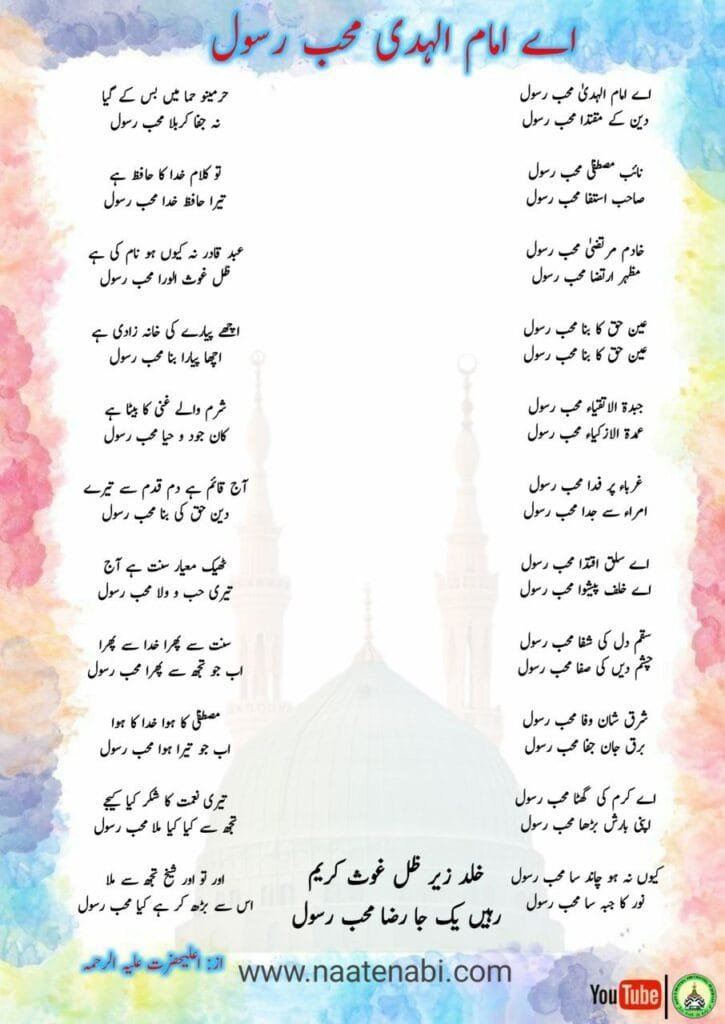 اے امام الہدیٰ محب رسول
اے امام الہدیٰ محب رسول
دین کے مقتدا محب رسول
نائب مصطفٰی محب رسول
صاحب استفا محب رسول
خادم مرتضیٰ محب رسول
مظہر ارتضا محب رسول
عین حق کا بنا محب رسول
عین حق کا بنا محب رسول
جبدۃ الاتقیاء محب رسول
عمدۃ الازکیاء محب رسول
غرباء پر فدا محب رسول
امراء سے جدا محب رسول
اے سلق اقتدا محب رسول
اے خلف پیشوا محب رسول
سقم دل کی شفا محب رسول
چشم دیں کی صفا محب رسول
شرق شان وفا محب رسول
برق جان جفا محب رسول
اے کرم کی گھٹا محب رسول
اپنی بارش بڑھا محب رسول
کیوں نہ ہو چاند سا محب رسول
نور کا جبہ سا محب رسول
حرمینو حما میں بس کے گیا
نہ جفا کربلا محب رسول
تو کلام خدا کا حافظ ہے
تیرا حافظ خدا محب رسول
عبد قادر نہ کیوں ہو نام کی ہے
ظل غوث الورا محب رسول
اچھے پیارے کی خانہ زادی ہے
اچھا پیارا بنا محب رسول
شرم والے غنی کا بیٹا ہے
کان جود و حیا محب رسول
آج قائم ہے دم قدم سے تیرے
دین حق کی بنا محب رسول
ٹھیک معیار سنت ہے آج
تیری حب و ولا محب رسول
سنت سے پھرا خدا سے پھرا
اب جو تجھ سے پھرا محب رسول
مصطفٰی کا ہوا خدا کا ہوا
اب جو تیرا ہوا محب رسول
تیری نعمت کا شکر کیا کیجے
تجھ سے کیا کیا ملا محب رسول
اور تو اور شیخ تجھ سے ملا
اس سے بڑھ کر ہے کیا محب رسول
خلد زیر ظل غوث کریم
رہیں یک جا رضا محب رسول
از: اعلیحضرت علیہ الرحمہ
www.naatenabi.com
YouTube